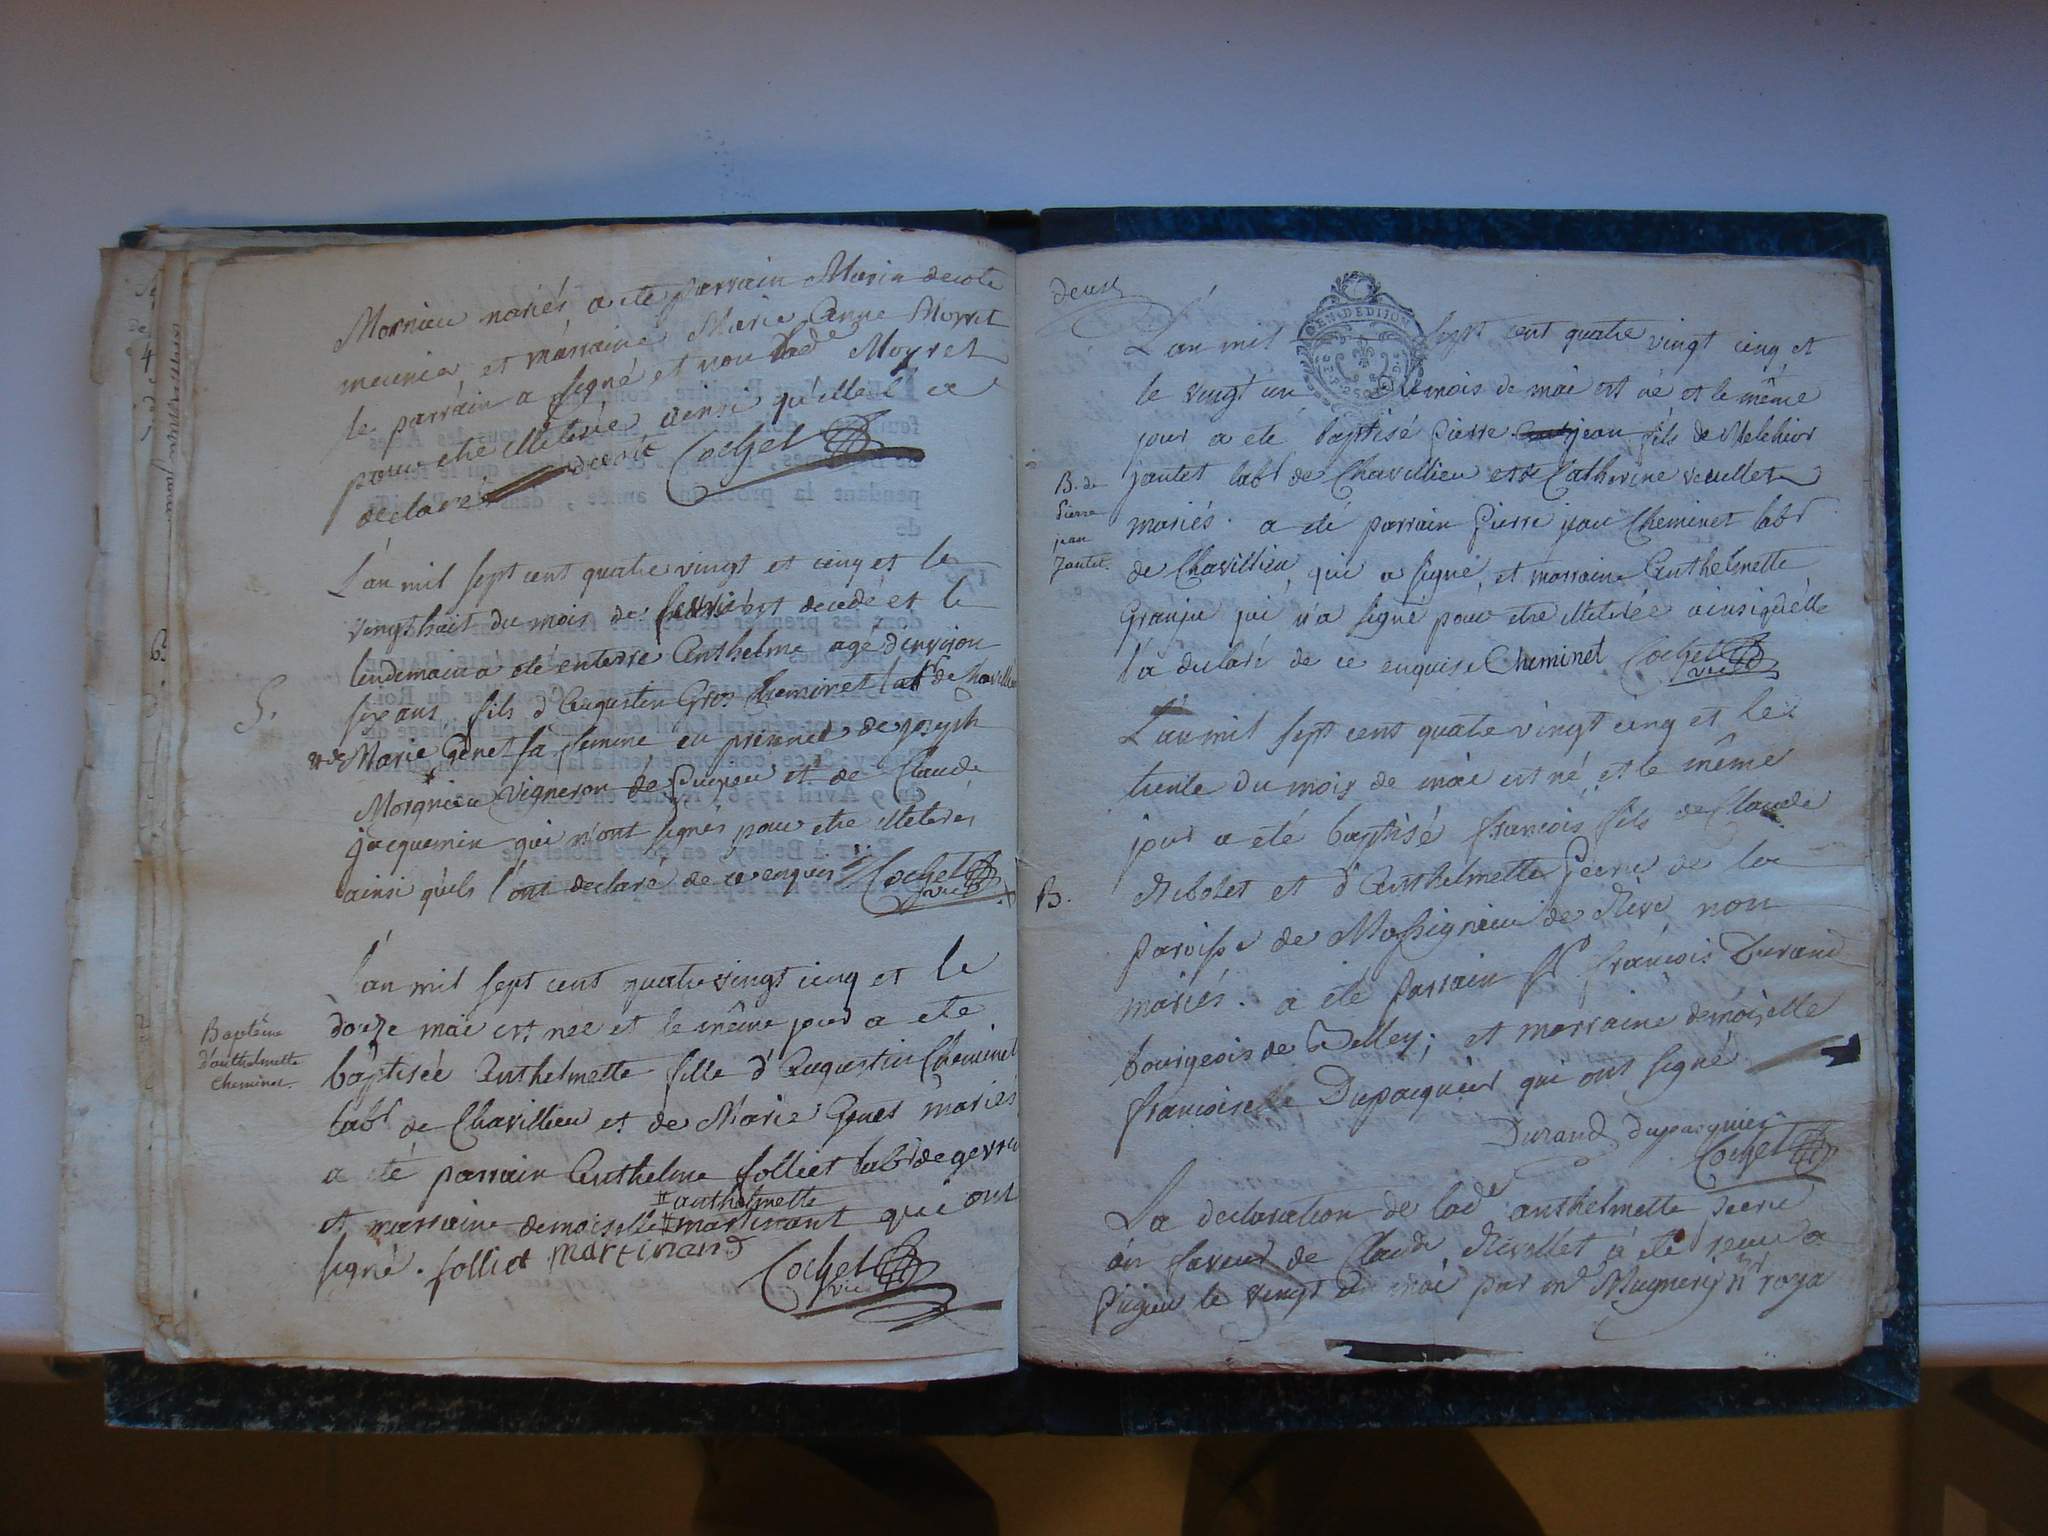 Mornieu mariés a eté parrain Marin decote
meunier et marraine Marie Anne Moyret
le parrain a signé et non lade Moyret
pour etre illeterée ainsi qu'elle l'a
declaré Cochet
L'an mil sept cent quatre vingt et cinq et le
vingt huit du mois de est decedé et le
lendemain a eté enterré Anthelme agé d'environ
S.
six ans fils d'Augustin Gros Cheminet labr de Chavillieu
et de Marie Genet sa femme en presence de joseph
Morgnieu vigneron de Pugieu et de Claude
jacquemin qui n'ont signés pour etre illeterés
ainsi qu'ils l'ont declaré de ce enquis Cochet
vic
L'an mil sept cent quatre vingt cinq et le
Baptême
d'anthelmette
Cheminet.
douze mai est née et le même jour a eté
baptisée Anthelmette fille d'Augustin Cheminet
labr de Chavillieu et de Marie Genet mariés
a été parrain Anthelme folliet labr de gevrin
# anthelmette
et marraine demoiselle # martinant qui ont
signé. folliet martinand
Cochet
vic
deux
GEN. DE DIJON
L'an mil sept cent quatre vingt cinq et
le vingt un du mois de mai est né et le même
jour a eté baptisé Pierre jean fils de Melchior
B. de
Pierre
jean
Jantet.
jantet labr de Chavillieu et de Catherine veuillet
mariés. a eté parrain Pierre jean Cheminet labr
de Chavillieu, qui a signé, et marraine Anthelmette
Granju qui n'a signé pour etre illeterée ainsi qu'elle
l'a declaré de ce enquise Cheminet Cochet
vic
L'an mil sept cent quatre vingt cinq et le
trente du mois de mai est né et le même
jour a eté baptisé françois fils de Claude
B.
Ribolet et d'Anthelmette Peerie de la
paroisse de Massignieu de Rive non
mariés. a eté parrain Sr françois Durand
bourgeois de Belley; et marraine demoiselle
françoise Dupacquier qui ont signé
Durand dupasquier
Cochet
La declaration de lade anthelmette Peerie
en faveur de Claude Rivollet a eté recu a
Pugieu le vingt mai par me Mugnery nre roya